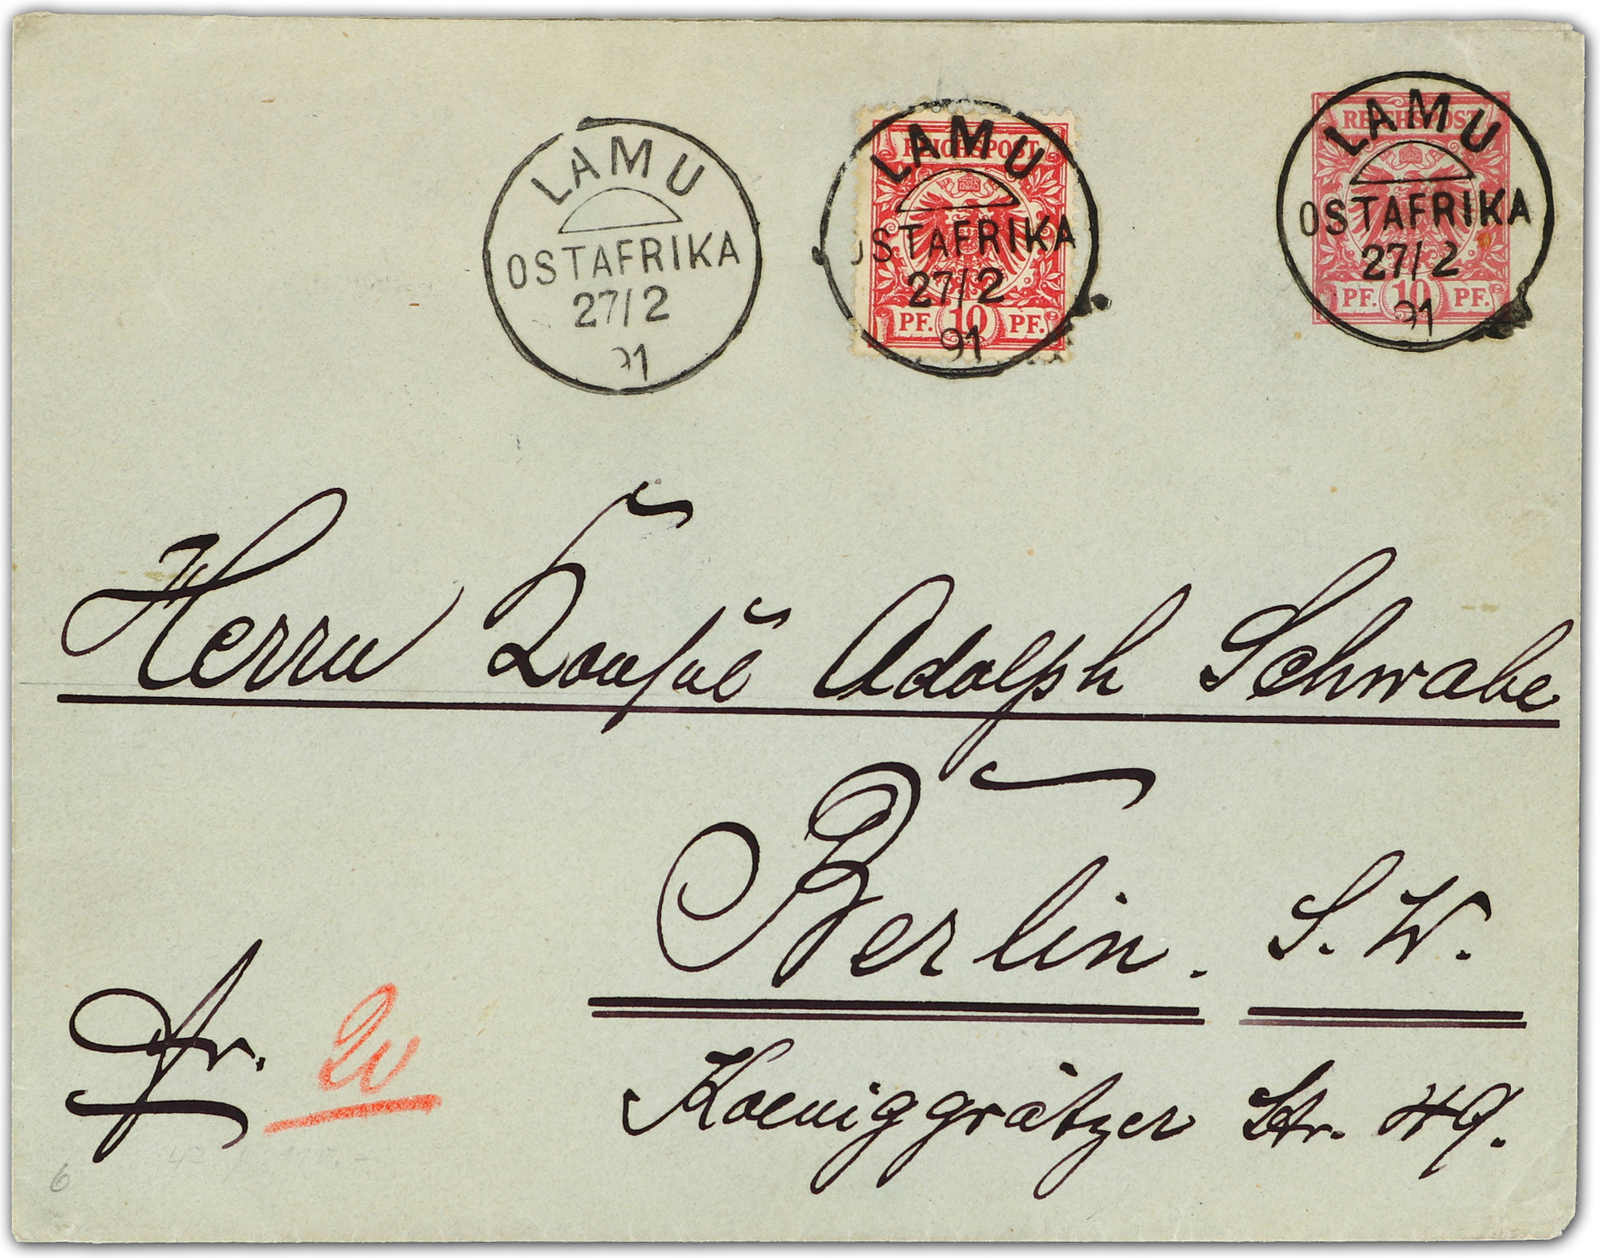 LAMU
OSTAFRIKA
27/2
91
REICHSPOST
PF. 10 PF.
LAMU
OSTAFRIKA
27/2
91
REICHSPOST
PF. 10 PF.
LAMU
OSTAFRIKA
27/2
91
Herrn Konsul Adolph Schwabe
Berlin. S. W.
Koeniggrätzer Str. 49.
fr. 20
6